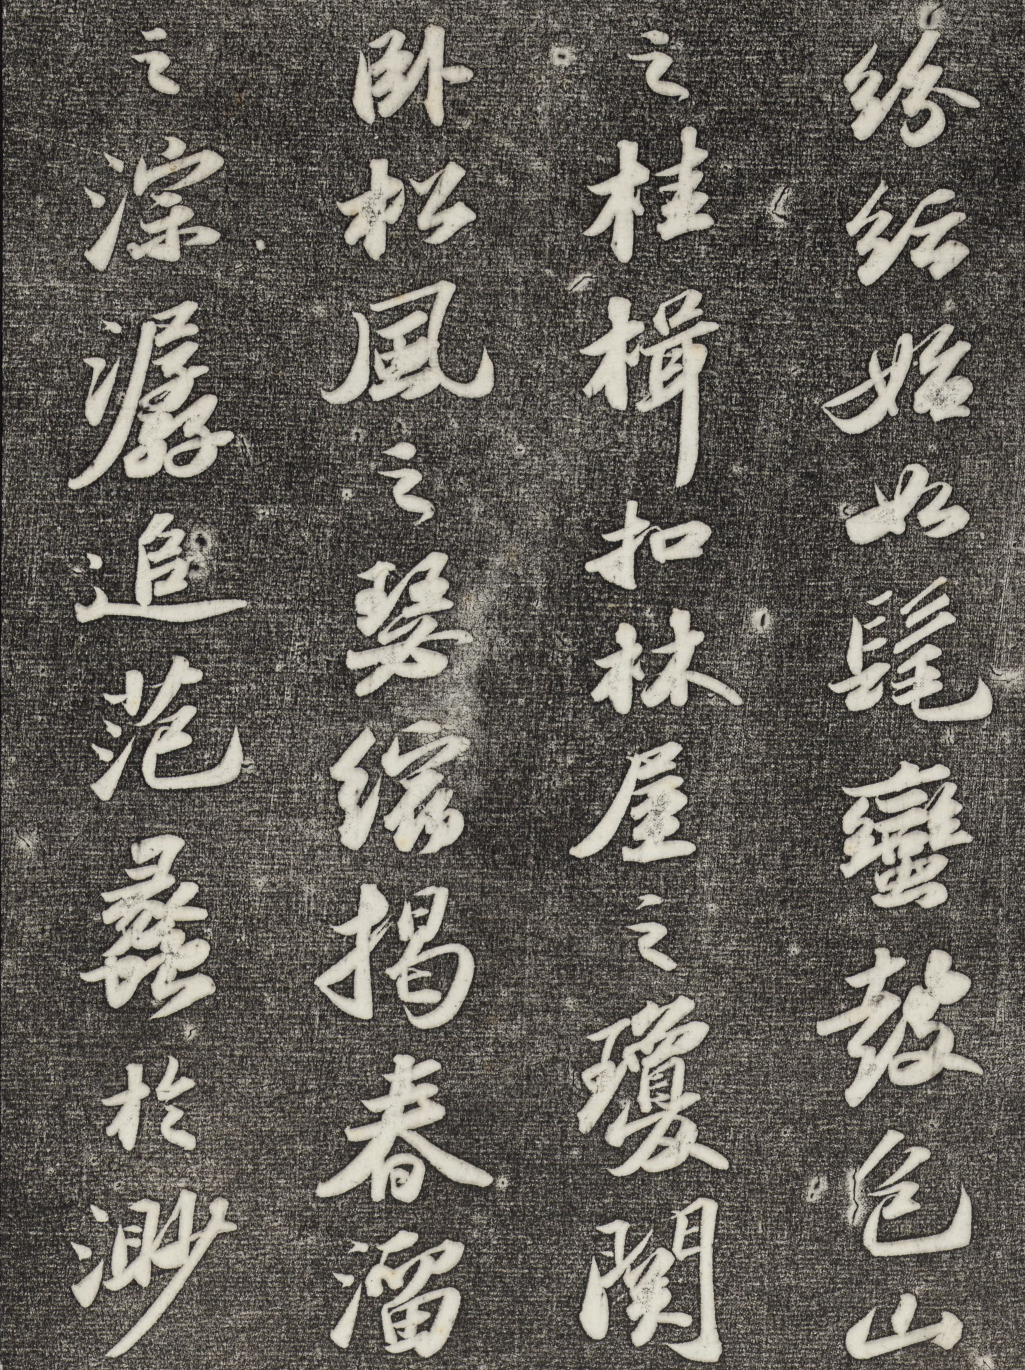 紛紜始如髦蠻鼓包山
之桂楫扣林屋之瓊關
臥松風之瑟縮揭春溜
之淙潺追范蠡於渺